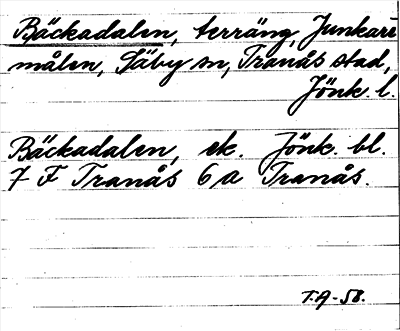 Bäckadalen, terräng, Junkare
målen, Säby sn, Tranås stad,
Jönk. l.
Bäckadalen, ek. Jönk. bl.
7 F Tranås 6 a Tranås.
T.A-58.